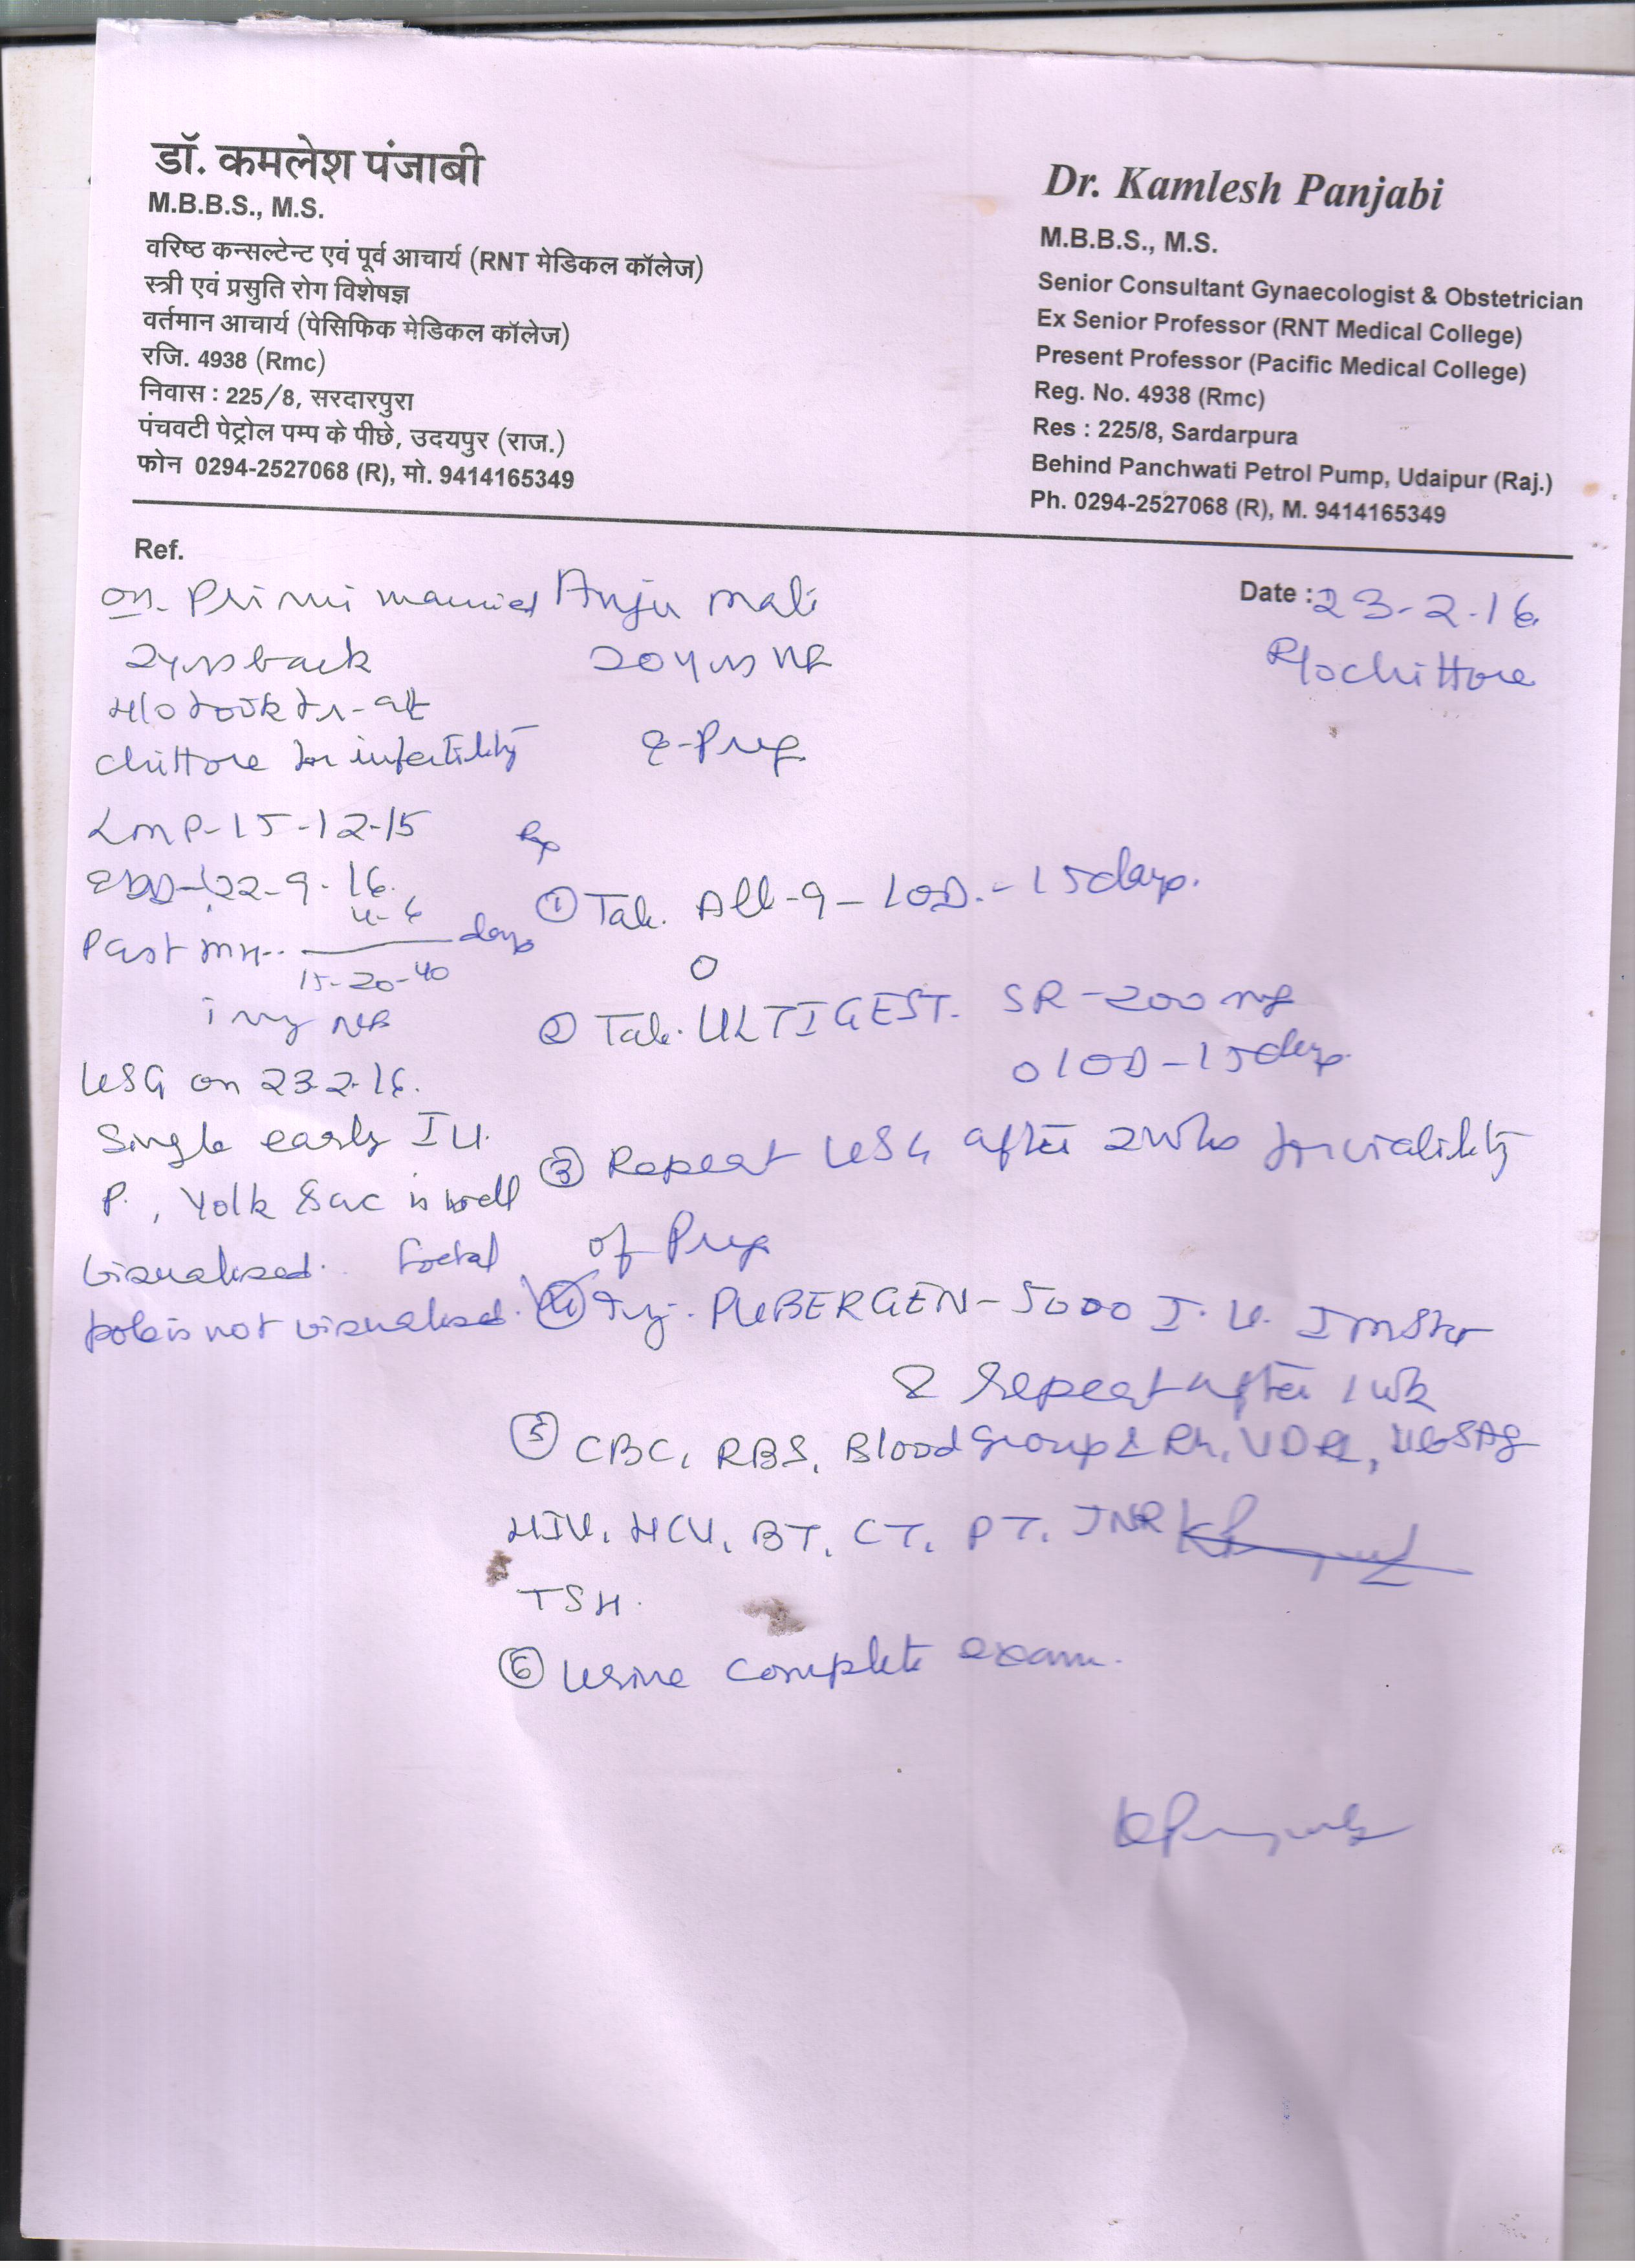 डॉ. कमलेश पंजाबी
M.B.B.S., M.S.
वरिष्ठ कन्सल्टेन्ट एवं पूर्व आचार्य (RNT मेडिकल कॉलेज)
स्त्री एवं प्रसुति रोग विशेषज्ञ
वर्तमान आचार्य (पेसिफिक मेडिकल कॉलेज)
रजि. 4938 (Rmc)
निवास : 225/8, सरदारपुरा
पंचवटी पेट्रोल पम्प के पीछे, उदयपुर (राज.)
फोन 0294-2527068 (R), मो. 9414165349
Dr. Kamlesh Panjabi
M.B.B.S., M.S.
Senior Consultant Gynaecologist & Obstetrician
Ex Senior Professor (RNT Medical College)
Present Professor (Pacific Medical College)
Reg. No. 4938 (Rmc)
Res : 225/8, Sardarpura
Behind Panchwati Petrol Pump, Udaipur (Raj.)
Ph. 0294-2527068 (R), M. 9414165349
Ref.
Date : 23-2-16
R/o chittore
Anju mali
20 yrs
Primi married
2 yrs back
H/o took
chittore for infertility
Preg
LMP-15-12-15
EDD-22-9-16.
Past MH-
4-6
days
15-20-40
USG on 23.2.16.
Single early I U
P, Yolk Sac is well
visualised. Foetal
pole is not visualised.
Rx
① Tab. All-9 - 1 OD.- 15 days.
② Tab. ULTIGEST. SR-200 mg
1 OD - 15 days.
③ Repeat USG after 2 wks for viability
of Preg
④ Inj. PUBERGEN-5000 I.U. IM
& repeat after 1 wk
⑤ CBC, RBS, Blood group & Rh, VDRL, HBSAg
HIV, HCV, BT, CT, PT, INR
TSH.
⑥ Urine complete exam.